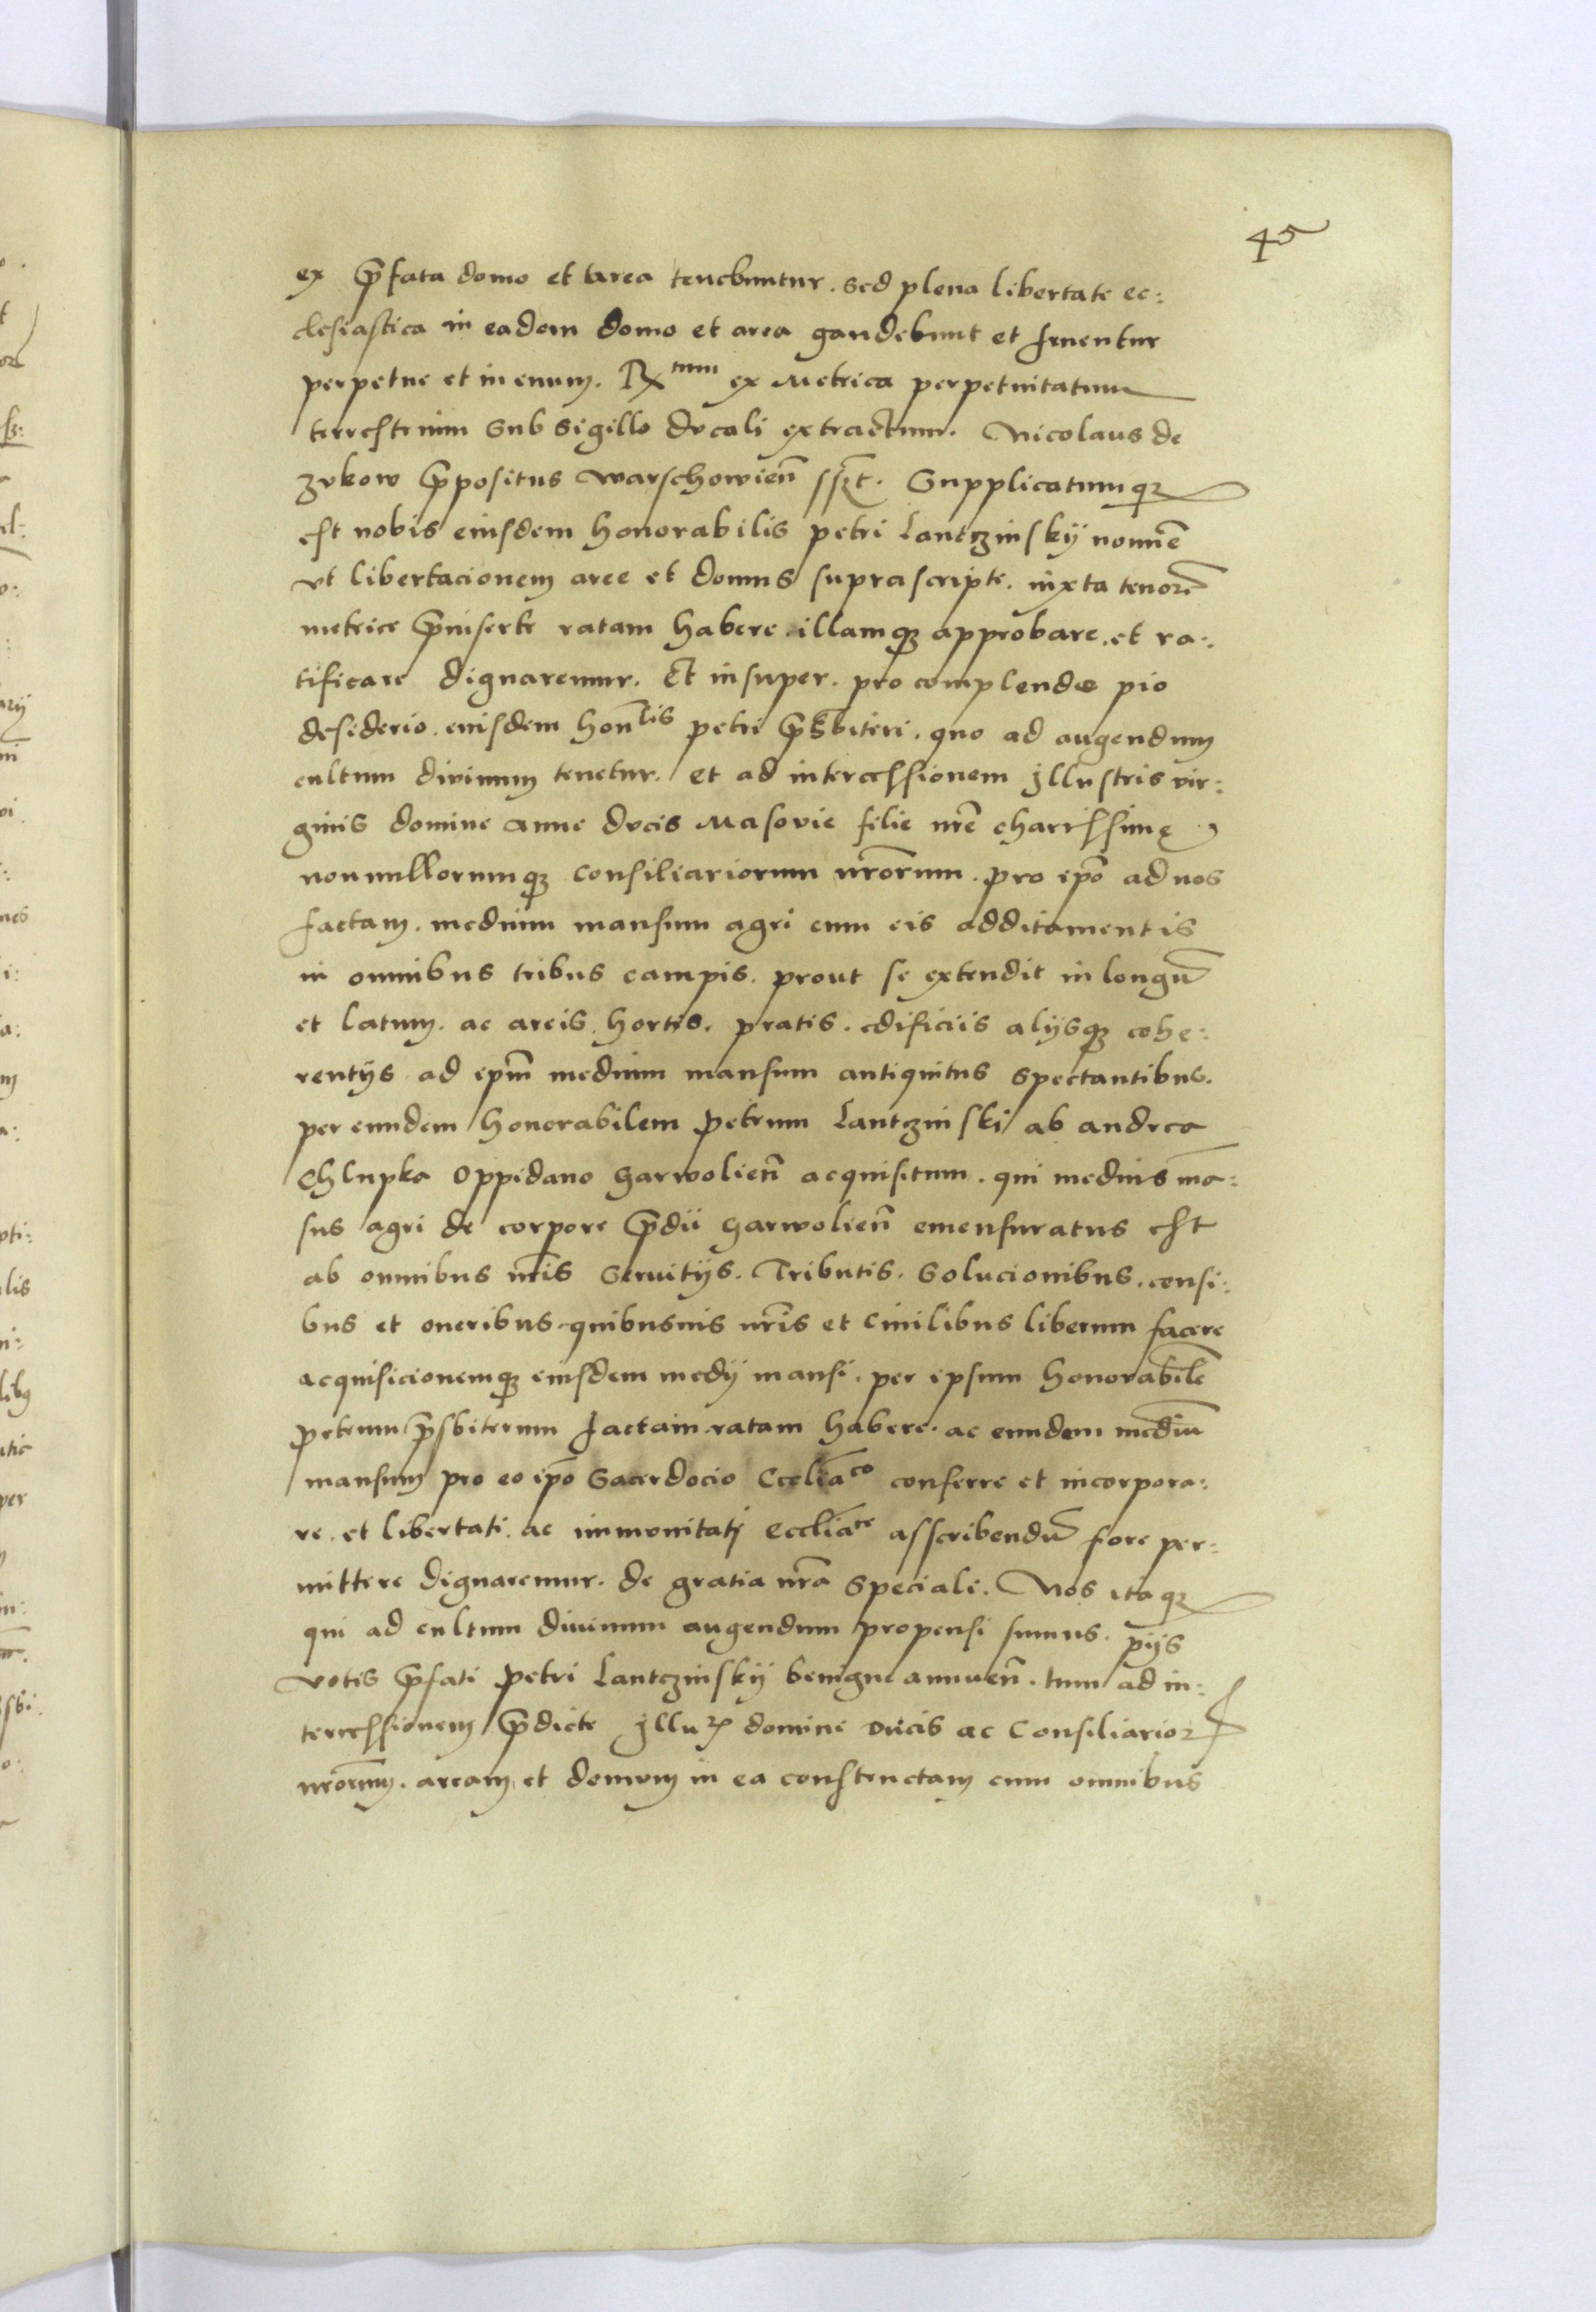 45
ex p̄fata domo et area tenebuntur. sed plena libertate ec:
clesiastica in eadem domo et area gaudebunt et fruentur
perpetue et in euum. Rx^tum ex Metrica perpetuitatum
terrestrium sub sigillo ducali extractum. Nicolaus de
zukow p̄positus warschowien̄ sszt. Supplicatumq;
est nobis eiusdem honorabilis petri Lantczinskÿ nomīe
vt libertacionem aree et domus suprascripte. iuxta tenorē
metrice p̄inserte ratam habere. illamq; approbare. et ra:
tificare dignaremur. Et insuper. pro complendo pio
desiderio. eiusdem hon̄^lis petri p̄sbiteri. quo ad augendum
cultum diuinum tenetur. et ad intercessionem jllustris vir:
ginis domine Anne ducis Masovie filie nr̄e charissimę
nonnullorumq; consiliariorum nr̄orum. pro ip̄o ad nos
factam. medium mansum agri cum eis additamentis
in omnibus tribus campis. prout se extendit in longū
et latum. ac areis. hortis. pratis. edificiis alÿsq; cohe:
rentÿs ad ip̄m medium mansum antiquitus spectantibus.
per eundem honorabilem Petrum Lantczinski ab andrea
Chlupka oppidano Garwolien̄ acquisitum. qui medius mā:
sus agri de corpore p̄dii Garwolien̄ emensuratus est
ab omnibus nr̄is seruitÿs. Tributis. Solucionibus. censi:
bus et oneribus quibusuis nr̄is et ciuilibus liberum facere
acquisicionemq; eiusdem medÿ mansi. per ipsum honorabilē
petrum p̄sbiterum factam ratam habere. ac eundem mediū
mansum pro eo ip̄o Sacerdocio Eccliā^co conferre et incorpora:
re. et libertati. ac immunitati eccliā^ce asscribendū fore per:
mittere dignaremur. de gratia nr̄a speciali. Nos itaq;
qui ad cultum diuinum augendum propensi sumus. pÿs
votis p̄fati Petri Lantczinskÿ benigne annuen̄. tum ad in:
tercessionem p̄dicte jllu. domine ducis ac Consiliarioꝝ
nr̄orum. aream et domum in ea constructam cum omnibus